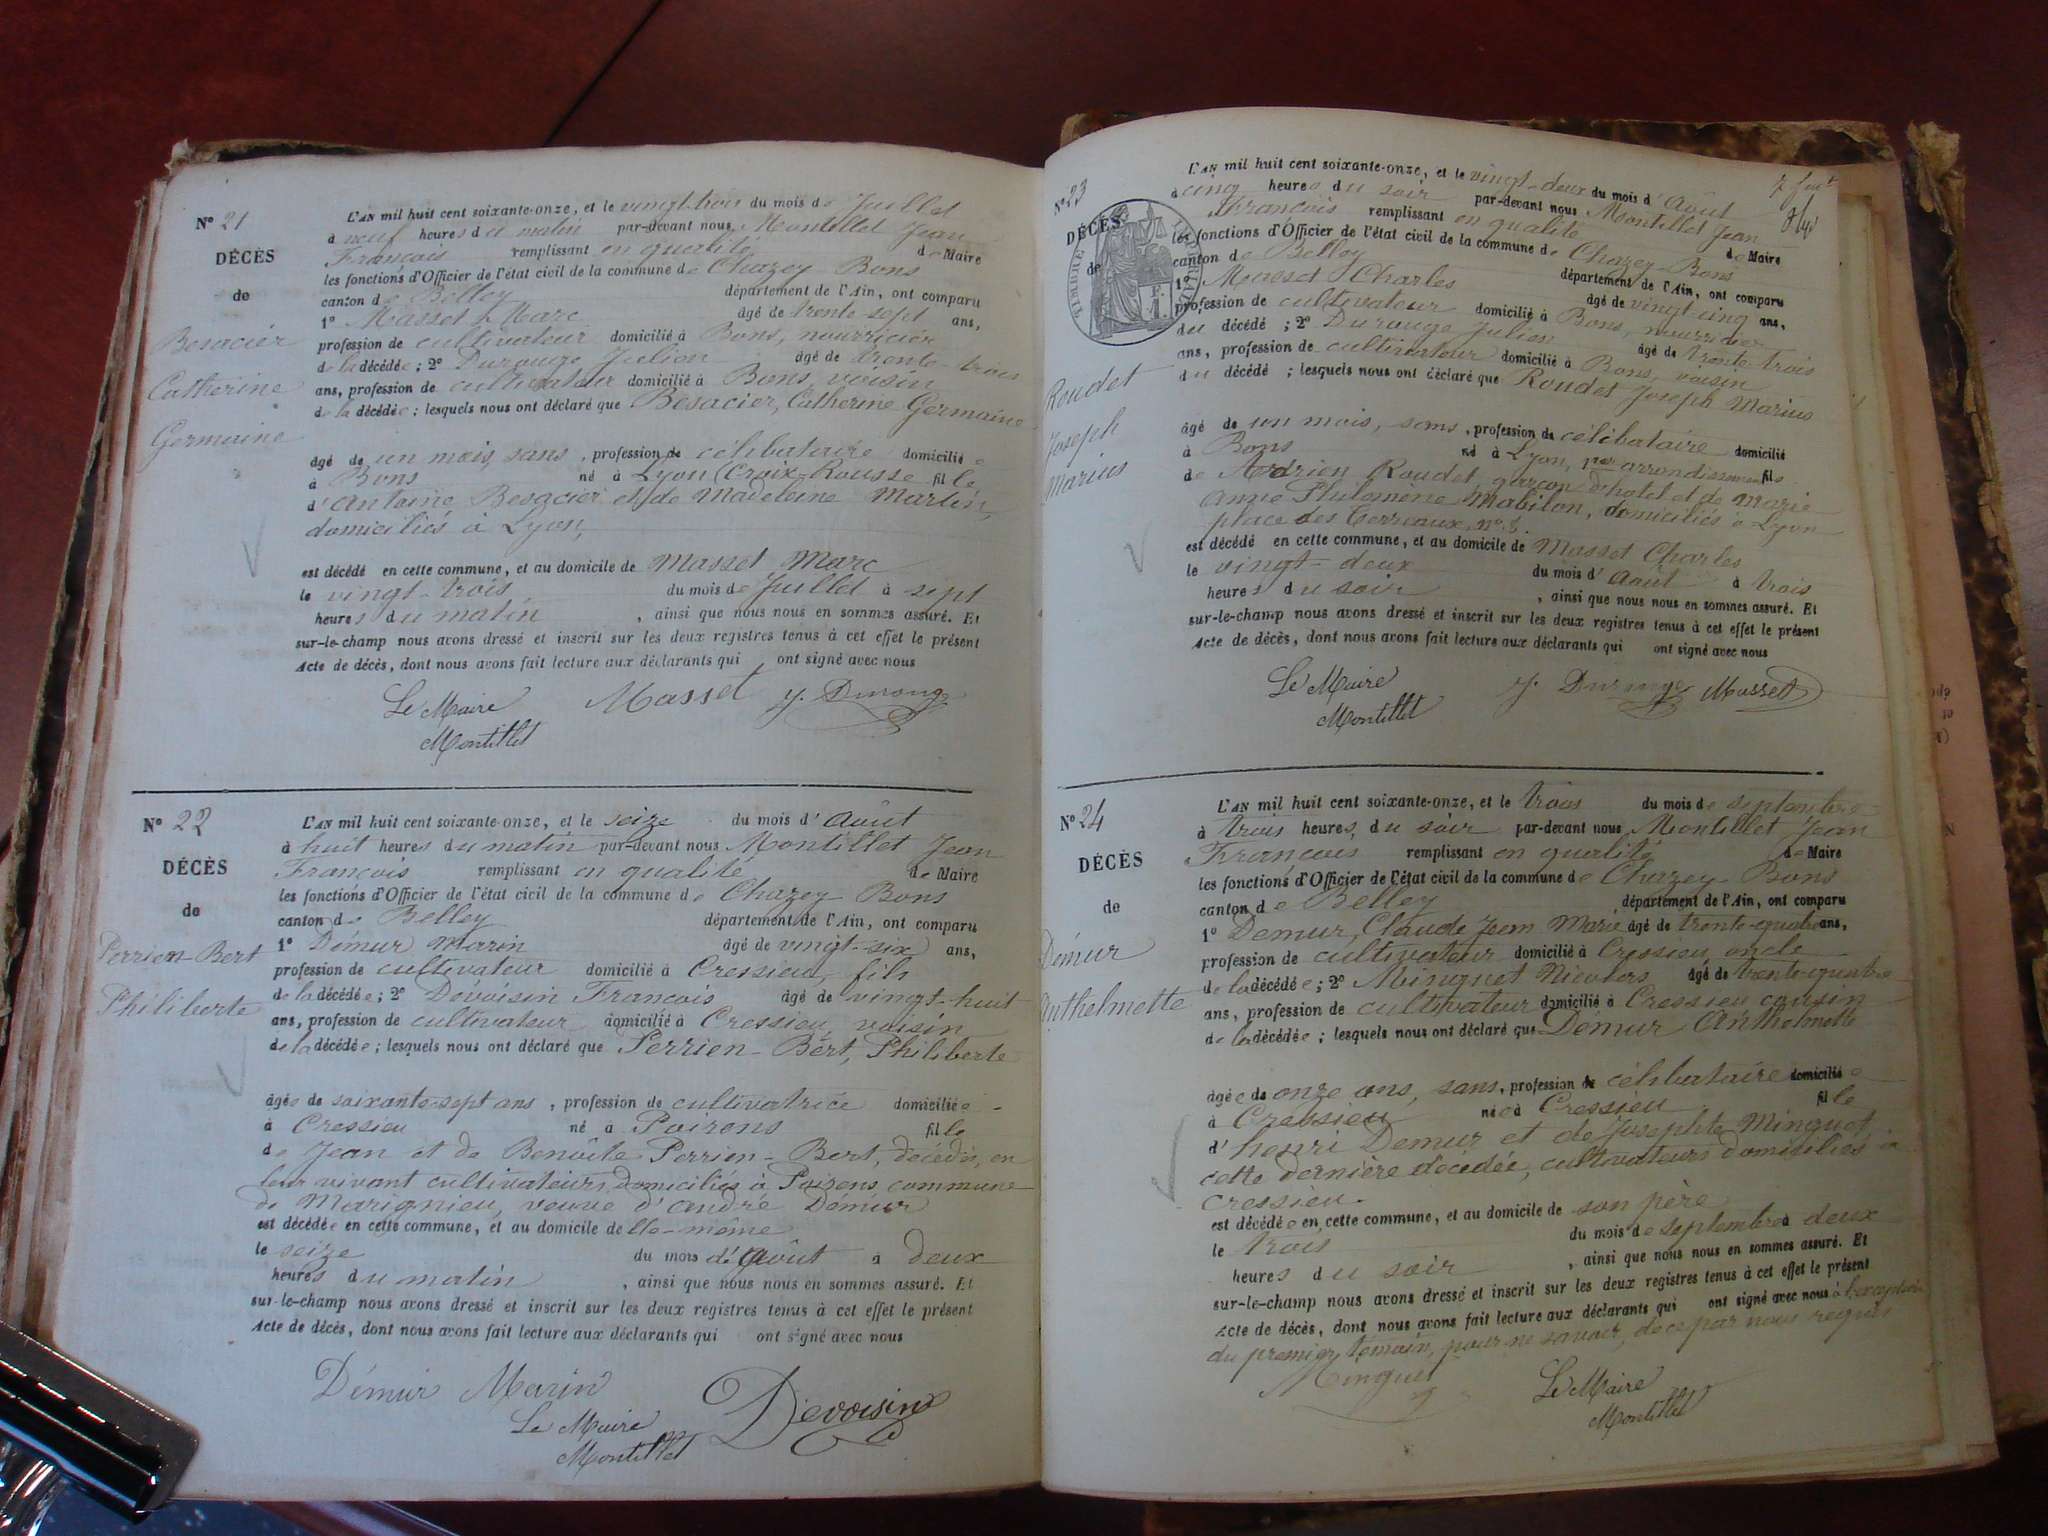 N° 21
DÉCÈS
de
Besacier
Catherine
Germaine
L'AN mil huit cent soixante-onze, et le vingt-trois du mois de Juillet
à neuf heures du matin par-devant nous Montillet Jean
François remplissant en qualité de Maire
les fonctions d'Officier de l'état civil de la commune de Chazey Bons
canton de Belley département de l'Ain, ont comparu
1° Masset Marc âgé de trente-sept ans,
profession de cultivateur domicilié à Bons, nourricier
de la décédée ; 2° Durouge Julien âgé de trente-trois
ans, profession de cultivateur domicilié à Bons, voisin
de la décédée ; lesquels nous ont déclaré que Besacier, Catherine Germaine
âgé de un mois, sans, profession de célibataire domicilié
à Bons né à Lyon (Croix-Rousse fille
d'Antoine Besacier et de Madeleine Martin,
domiciliés à Lyon,
est décédé en cette commune, et au domicile de Masset Marc
le vingt-trois du mois de Juillet à sept
heures du matin, ainsi que nous nous en sommes assuré. Et
sur-le-champ nous avons dressé et inscrit sur les deux registres tenus à cet effet le présent
Acte de décès, dont nous avons fait lecture aux déclarants qui ont signé avec nous
Le Maire Masset J. Durouge
Montillet
N° 22
DÉCÈS
de
Perrien-Bert
Philiberte
L'AN mil huit cent soixante-onze, et le seize du mois d'Août
à huit heures du matin par-devant nous Montillet Jean
François remplissant en qualité de Maire
les fonctions d'Officier de l'état civil de la commune de Chazey-Bons
canton de Belley département de l'Ain, ont comparu
1° Démur Marin âgé de vingt-six ans,
profession de cultivateur domicilié à Cressieu, fils
de la décédée ; 2° Dévoisin François âgé de vingt-huit
ans, profession de cultivateur domicilié à Cressieu, voisin
de la décédée ; lesquels nous ont déclaré que Perrien-Bert, Philiberte
âgée de soixante-sept ans, profession de cultivatrice domiciliée
à Cressieu né à Poirons fille
de Jean et de Benoîte Perrien-Bert, décédés, en
leur vivant cultivateurs domiciliés à Poirens commune
de Marignieu, veuve d'andré Démur
est décédée en cette commune, et au domicile d'elle-même
le seize du mois d'Août à deux
heures du matin, ainsi que nous nous en sommes assuré. Et
sur-le-champ nous avons dressé et inscrit sur les deux registres tenus à cet effet le présent
Acte de décès, dont nous avons fait lecture aux déclarants qui ont signé avec nous
Démur Marin Devoisin
Le Maire
Montillet
N° 23
DÉCÈS
de
TIMBRE IMPÉRIAL
1 F.
Roudet
Joseph
Marius
L'AN mil huit cent soixante-onze, et le vingt-deux du mois d'Août
à cinq heures du soir par-devant nous Montillet Jean
François remplissant en qualité de Maire
les fonctions d'Officier de l'état civil de la commune de Chazey-Bons
canton de Belley département de l'Ain, ont comparu
1° Masset Charles âgé de vingt-cinq ans,
profession de cultivateur domicilié à Bons, nourricier
du décédé ; 2° Durouge Julien âgé de trente-trois
ans, profession de cultivateur domicilié à Bons, voisin
du décédé ; lesquels nous ont déclaré que Roudet Joseph Marius
âgé de un mois, sans, profession de célibataire domicilié
à Bons né à Lyon, 1er arrondissement fils
de Adrien Roudet, garçon d'hotel et de Marie
Anne Philomène Mabilon, domiciliés à Lyon
place des Terreaux, n°
est décédé en cette commune, et au domicile de Masset Charles
le vingt-deux du mois d'Août à trois
heures du soir, ainsi que nous nous en sommes assuré. Et
sur-le-champ nous avons dressé et inscrit sur les deux registres tenus à cet effet le présent
Acte de décès, dont nous avons fait lecture aux déclarants qui ont signé avec nous
Le Maire J. Durouge Masset
Montillet
N° 24
DÉCÈS
de
Démur
Anthelmette
L'AN mil huit cent soixante-onze, et le trois du mois de septembre
à trois heures du soir par-devant nous Montillet Jean
François remplissant en qualité de Maire
les fonctions d'Officier de l'état civil de la commune de Chazey-Bons
canton de Belley département de l'Ain, ont comparu
1° Demur, Claude Jean Marie âgé de trente-quatre ans,
profession de cultivateur domicilié à Cressieu oncle
de la décédée ; 2° Minguet Nicolas âgé de trente-quatre
ans, profession de cultivateur domicilié à Cressieu cousin
de la décédée ; lesquels nous ont déclaré que Démur Anthelmette
âgée de onze ans, sans, profession de célibataire domiciliée
à Cressieu née à Cressieu fille
d'henri Demur et de Josephte Minguet,
cette dernière décédée, cultivateurs domiciliés à
Cressieu.
est décédée en cette commune, et au domicile de son père
le trois du mois de septembre à deux
heures du soir, ainsi que nous nous en sommes assuré. Et
sur-le-champ nous avons dressé et inscrit sur les deux registres tenus à cet effet le présent
Acte de décès, dont nous avons fait lecture aux déclarants qui ont signé avec nous à l'exception
du premier témoin, pour ne savoir, de ce par nous requis
Minguet Le Maire
Montillet